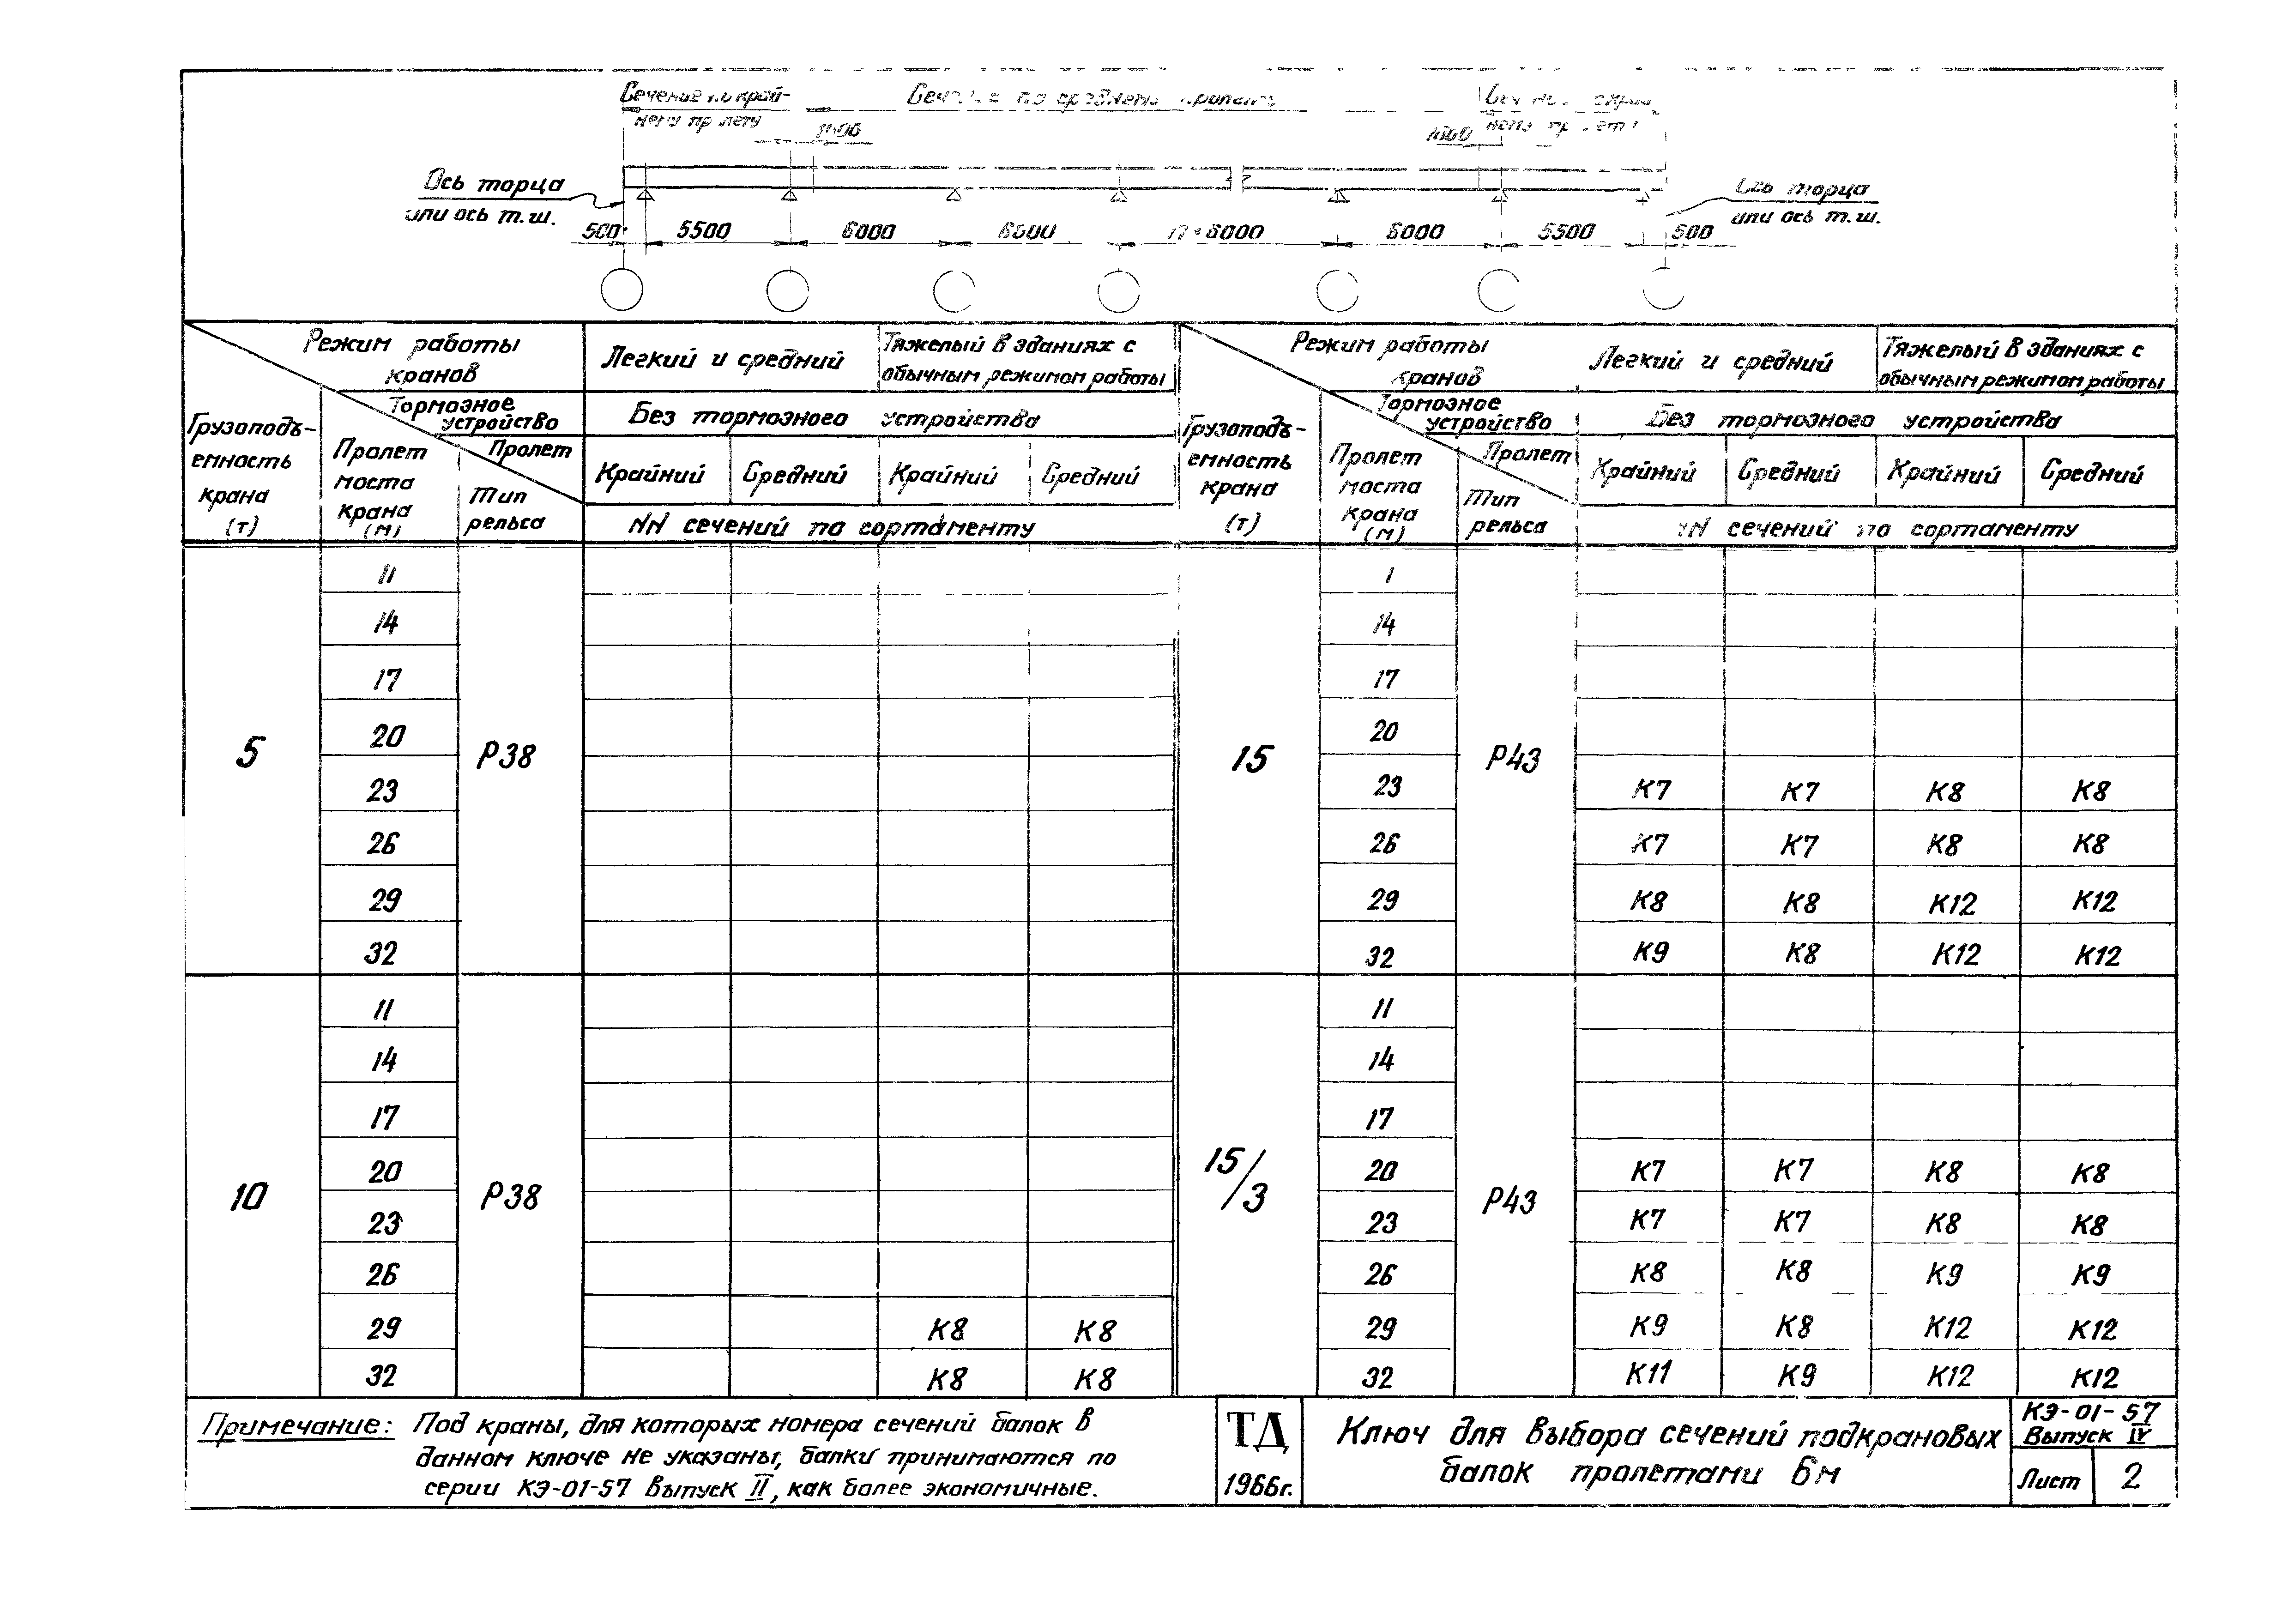 Сечение по край-
нему пролету
1000
1000
Ось торца
или ось т.ш.
Ось торца
или ось т.ш.
500 5500 6000 6000 6000 5500 500
Режим работы
кранов
Легкий и средний
Тяжелый в зданиях с
обычным режимом работы
Тормозное
устройство
Без тормозного устройства
Грузоподъ-
емность
крана
(т)
Пролет
моста
крана
(м)
Пролет
Тип
рельса
Крайний Средний Крайний Средний
NN сечений по сортаменту
5 Р38
11
14
17
20
23
26
29
32
10 Р38
11
14
17
20
23
26
29 К8 К8
32 К8 К8
Режим работы
кранов
Легкий и средний
Тяжелый в зданиях с
обычным режимом работы
Тормозное
устройство
Без тормозного устройства
Грузоподъ-
емность
крана
(т)
Пролет
моста
крана
(м)
Пролет
Тип
рельса
Крайний Средний Крайний Средний
NN сечений по сортаменту
15 Р43
14
17
20
23 К7 К7 К8 К8
26 К7 К7 К8 К8
29 К8 К8 К12 К12
32 К9 К8 К12 К12
15/3 Р43
11
14
17
20 К7 К7 К8 К8
23 К7 К7 К8 К8
26 К8 К8 К9 К9
29 К9 К8 К12 К12
32 К11 К9 К12 К12
Примечание: Под краны, для которых номера сечений балок в
данном ключе не указаны, балки принимаются по
серии КЭ-01-57 Выпуск II, как более экономичные.
ТД
1966г.
Ключ для выбора сечений подкрановых
балок пролетами 6м
КЭ-01-57
Выпуск IV
Лист 2